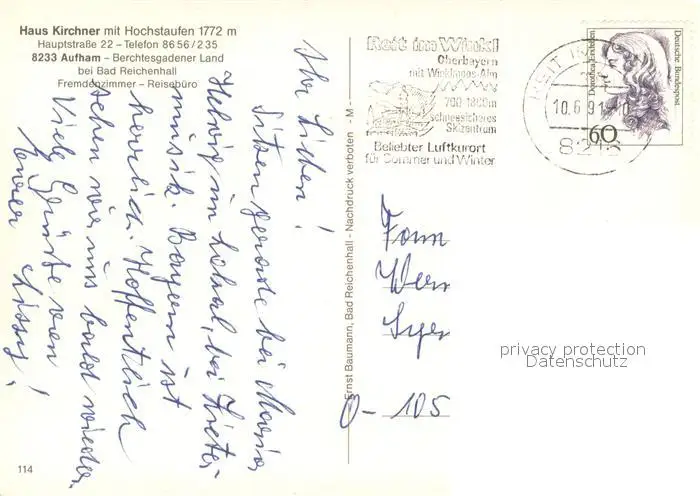 Haus Kirchner mit Hochstaufen 1772 m
Hauptstraße 22 – Telefon 8656/235
8233 Aufham – Berchtesgadener Land
bei Bad Reichenhall
Fremdenzimmer – Reisebüro
Ihr Lieben!
Sitzen gerade bei Maria
Hellwig im Lokal, bei Zieter-
musik. Bayern ist
herrlich. Hoffentlich
sehen wir uns bald wieder.
Viele Grüße von
Eurer Lissy!
114
Ernst Baumann, Bad Reichenhall - Nachdruck verboten - M -
Reit im Winkl
Oberbayern
mit Winklmoos-Alm
700-1800m
schneesicheres
Skizentrum
Beliebter Luftkurort
für Sommer und Winter
REIT I
10.6.91
8216
Deutsche Bundespost
60
Fam
Wer
O- 105
privacy protection
Datenschutz